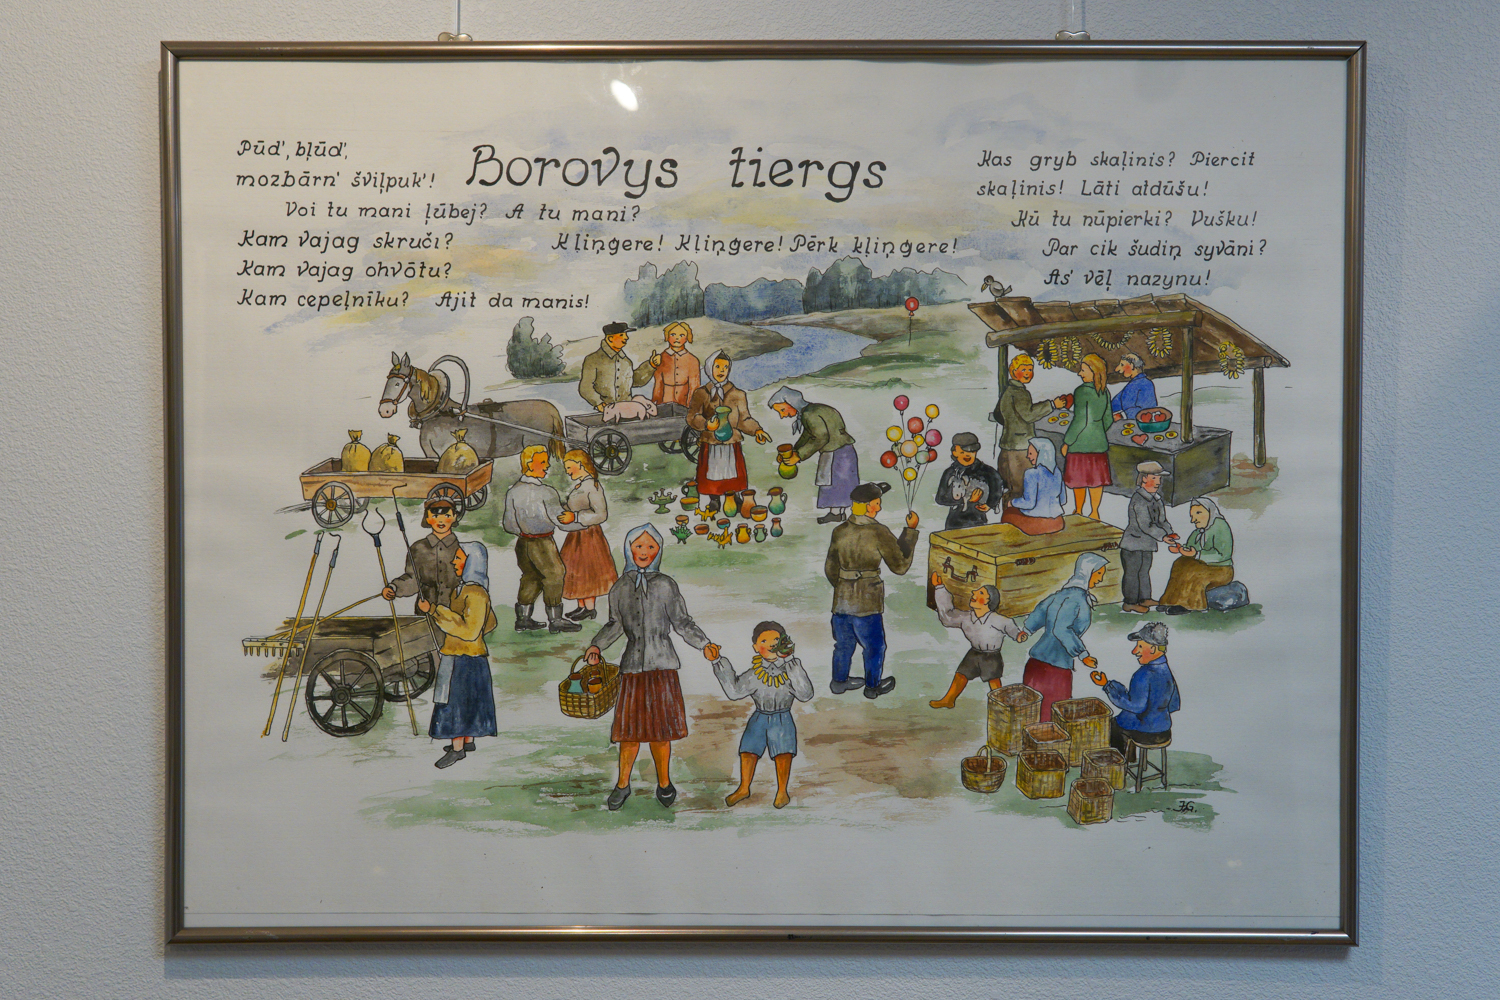 Borovys tiergs
Pūd', bļūd',
mozbārn' šviļpuk'!
Voi tu mani ļūbej? A tu mani?
Kam vajag skruči?
Kam vajag ohvōtu?
Kam cepeļnīku? Ajit da manis!
Kļiņģere! Kļiņģere! Pērk kļiņģere!
Kas gryb skaļinis? Piercit
skaļinis! Lāti atdūšu!
Kū tu nūpierki? Vušku!
Par cik šudiņ syvāni?
As' vēļ nazynu!
JG.